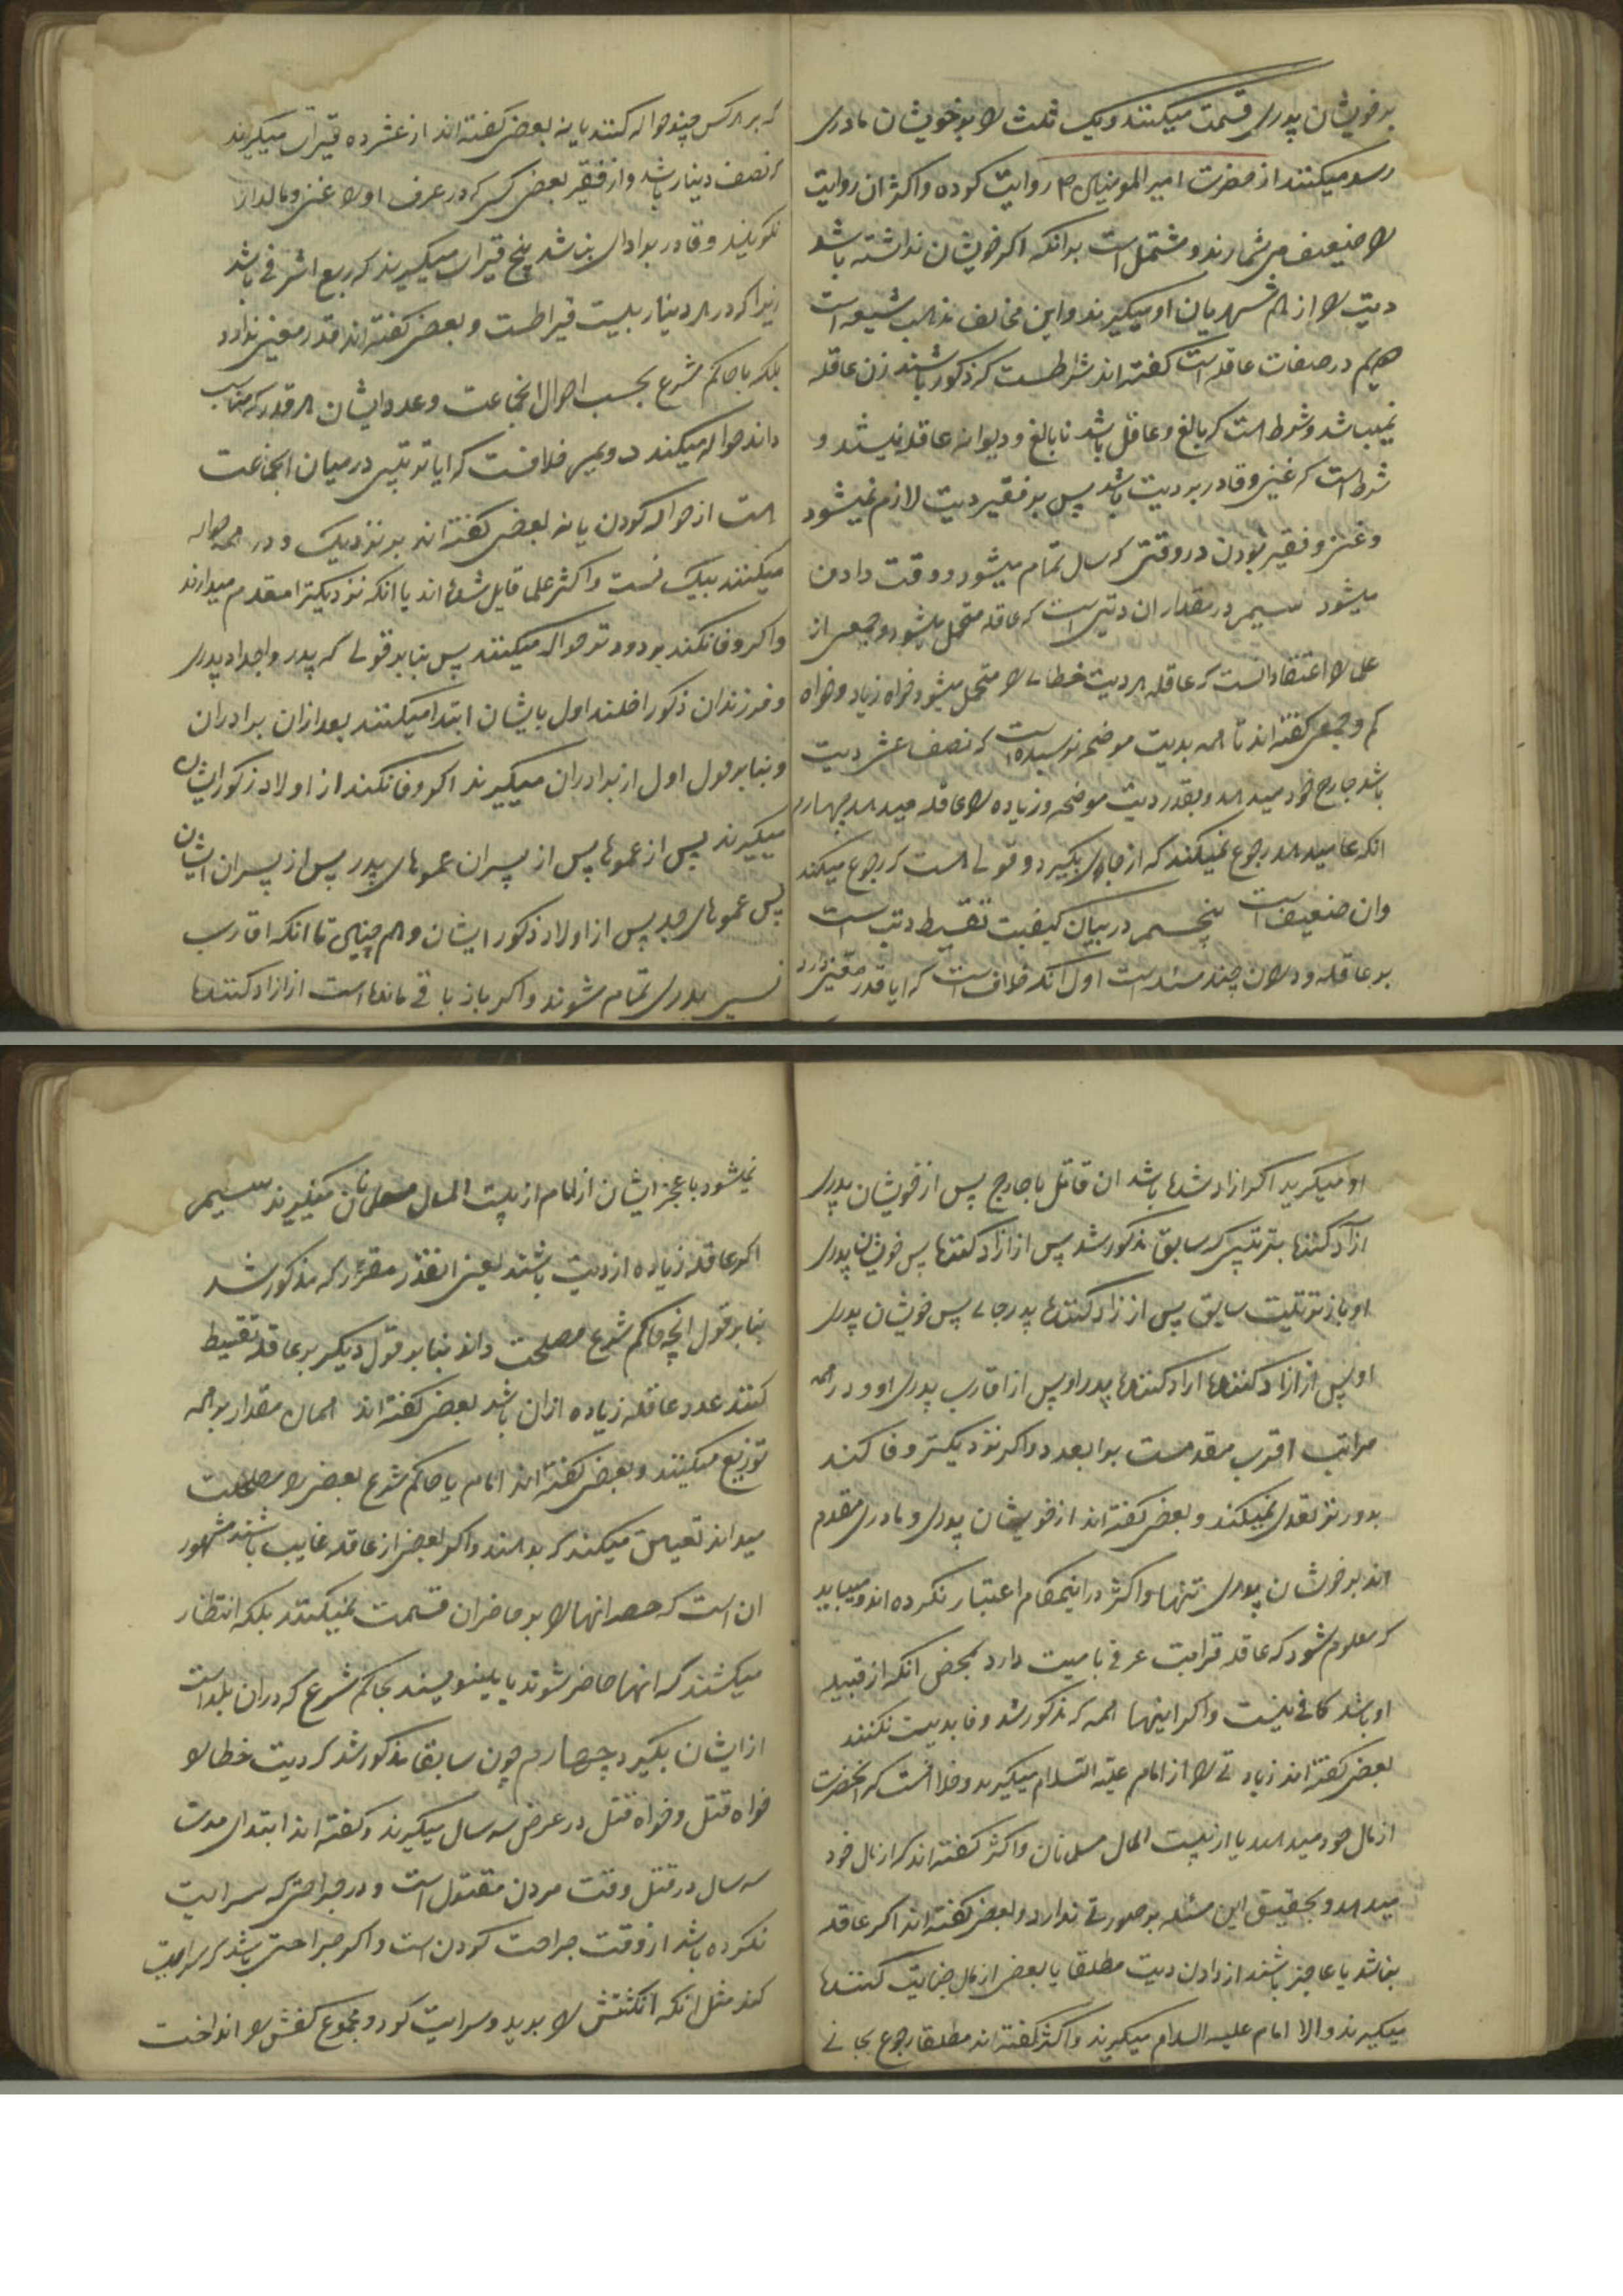 بر خویشان پدری قسمت میکنند و یک ثلث را بر خویشان مادری
رسد میکنند از حضرت امیر المومنین ۴ روایت کرده و اکثر ان روایت
را ضعیف می شمارند و مشتمل است بر انکه اکر خویشان نداشته باشد
دیت را از هم شهریان او میکیرند و این مخالف مذهب شیعه است
در صفات عاقله است کفته اند شرطست که ذکور باشند زن عاقله
نمیباشد و شرط است که بالغ و عاقل باشد نابالغ و دیوانه عاقله نیستند و
شرط است که غنی و قادر بر دیت باشد پس بر فقیر دیت لازم نمیشود
و غنی و فقیر بودن در وقتی که سال تمام میشود و وقت دادن
میشود سیم در مقدار ان دیتی است که عاقله متحمل میشود و جمعی از
علما را اعتقاد انست که عاقله هر دیت خطای را متحمل میشود خواه زیاد و خواه
کم و جمعی کفته اند تا همه بدیت موضحه نرسیده است که نصف عشر دیت
باشد جارح خود میدهد و بقدر دیت موضحه و زیاده را عاقله میدهد چهارم
انکه عاقله رجوع نمیکند که از جانی بکیرد و قولی هست که رجوع میکند
وان ضعیف است پنجم در بیان کیفیت تقسیط دیت است
بر عاقله و دران چند مسئله است اول انکه خلاف است که ایا قدر معینی دارد
که بر هر کس چند حواله کنند یا نه بعضی کفته اند از غنی ده قیراط میکیرند
که نصف دینار باشد و از فقیر بعضی کسی که در عرف او را غنی و مالدار
نکویند و قادر بر ادای بباشد پنج قیراط میکیرند که ربع اشرفی باشد
زیرا که در هر دینار بیست قیراطست و بعضی کفته اند قدر معینی ندارد
بلکه با حاکم شرع بحسب احوال انجماعت و عدد ایشان هر قدر که مناسب
داند حواله میکند دویم خلافست که ایا ترتیبی در میان انجماعت
هست از حواله کردن یا نه بعضی کفته اند بر نزدیک و دور همه حواله
میکنند بیک نسبت و اکثر علما قایل شده اند با انکه نزدیکتر را مقدم میدارند
و اکر وفا نکند بر دورتر حواله میکنند پس بنا بر قولی که پدر و اجداد پدری
و فرزندان ذکور داخلند اول بایشان ابتدا میکنند بعد از ان برادران
و بنا بر قول اول از برادران میکیرند اکر وفا نکند از اولاد ذکور ایشان
میکیرند پس از عموها پس از پسران عموهای پدر پس از پسران ایشان
پس عموهای جد پس از اولاد ذکور ایشان و هم چنین تا انکه اقارب
نسبی پدری تمام شوند و اکر باز باقی مانده است از ازاد کننده
او میکیرند اکر ازاد شده باشد ان قاتل یا جارح پس از خویشان پدری
ازاد کننده بترتیبی که سابق مذکور شد پس از ازاد کننده پس خویشان پدری
او باز بترتیب سابق پس از ازاد کننده پدر جانی پس خویشان پدری
او پس از ازاد کننده ازاد کننده پدر او پس از اقارب پدری او و در همه
مراتب اقرب مقدمست بر ابعد و اکر نزدیکتر وفا کند
بدورتر تعدی نمیکند و بعضی کفته اند از خویشان پدری و مادری مقدم
اند بر خویشان پدری تنها و اکثر در اینمقام اعتبار نکرده اند و میباید
که معلوم شود که عاقله قرابت عرفی با میت دارد بمحض انکه از قبیله
او باشد کافی نیست و اکر اینها همه که مذکور شد وفا بدیت نکنند
بعضی کفته اند زیادتی را از امام علیه السلام میکیرند و خلافست که انحضرت
از مال خود میدهد یا از بیت المال مسلمانان و اکثر کفته اند که از مال خود
میدهد و تحقیق این مسئله ضرورتی ندارد و بعضی کفته اند اکر عاقله
نباشد یا عاجز باشند از دادن دیت مطلقا یا بعضی از مال جنایت کننده
میکیرند والا امام علیه السلام میکیرند و اکثر کفته اند مطلقا رجوع بجانی
نمیشود با عجز ایشان از امام از بیت المال مسلمانان میکیرند سیم
اکر عاقله زیاده از دیت باشند یعنی انقدر مقرر که مذکور شد
بنا بر قول انچه حاکم شرع مصلحت داند بنا بر قول دیکر بر عاقله تقسیط
کنند عدد عاقله زیاده از ان باشد بعضی کفته اند همان مقدار بر همه
توزیع میکنند و بعضی کفته اند امام یا حاکم شرع بعضی را مصلحت
میداند تعیین میکند که بدهند و اکر بعضی از عاقله غایب باشند مشهور
ان است که حصه انها را بر حاضران قسمت نمیکنند بلکه انتظار
میکشند که انها حاضر شوند یا مینویسند بحاکم شرع که دران بلد است
از ایشان بکیرد چهارم چون سابقا مذکور شد که دیت خطا را
خواه قتل و خواه قتل در عرض سه سال میکیرند و کفته اند ابتدای مدت
سه سال در قتل وقت مردن مقتول است و در جراحتی که سرایت
نکرده باشد از وقت جراحت کردن است و اکر جراحتی باشد که سرایت
کند مثل انکه انکشتش را برید و سرایت کرد و مجموع کفش را انداخت